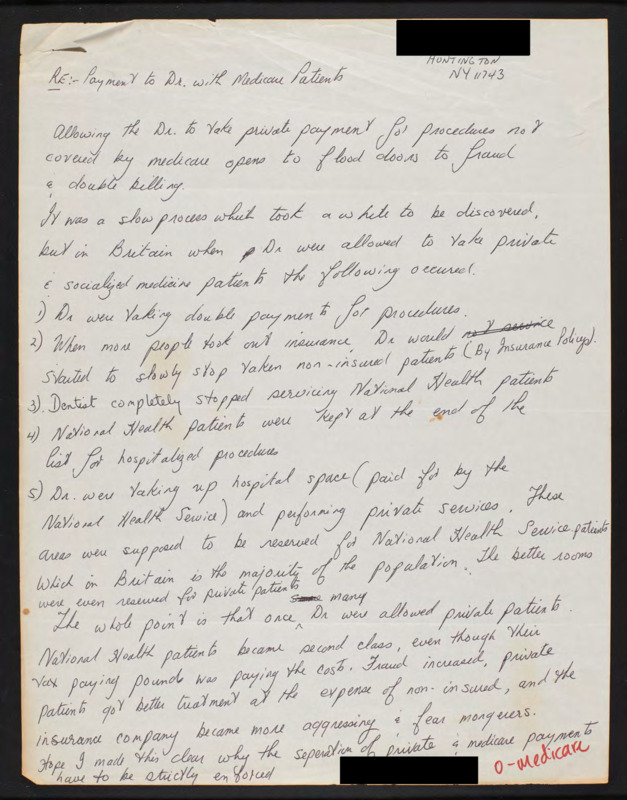 HUNTINGTON
NY 11743
RE:- Payment to Dr. with Medicare Patients
Allowing the Dr. to take private payment for procedures not
covered by medicare opens to flood doors to fraud
& double billing.
It was a slow process whit took a while to be discovered,
but in Britain when Dr were allowed to take private
& socialized medicine patients the following occured.
1) Dr were taking double payments for procedures.
2) When more people took out insurance, Dr would not service
started to slowly stop taken non-insured patients (By Insurance Policys).
3). Dentist completely stopped servicing National Health patients
4) National Health patients were kept at the end of the
list for hospitalized procedures
5) Dr. were taking up hospital space (paid for by the
National Health Service) and performing private services. These
areas were supposed to be reserved for National Health Service patients
Which in Britain is the majority of the population. The better rooms
were even reserved for private patients
The whole point is that once some many Dr were allowed private patients.
National Health patients became second class, even though their
tax paying pounds was paying the cost. Fraud increased, private
patients got better treatment at the expense of non-insured, and the
insurance company became more aggressing & fear mongerers.
Hope I made this clear why the seperation of private & medicare payments
have to be strictly enforced
O-Medicare